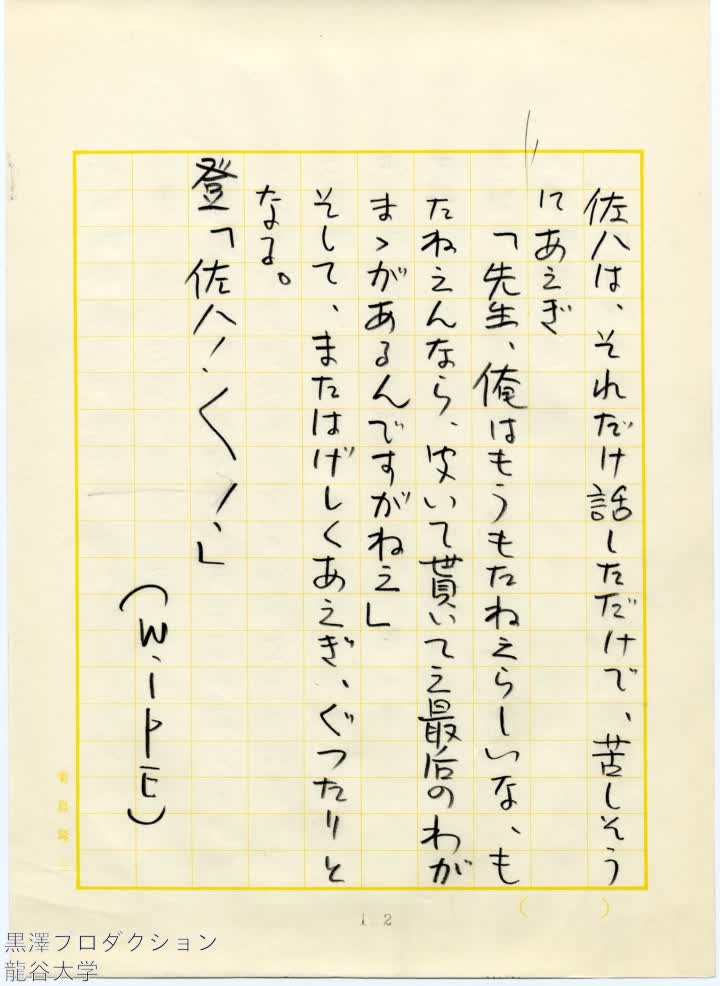 佐八は、それだけ話しただけで、苦しそう
にあえぎ
「先生、俺はもうもたねえらしいな、も
たねえんなら、皮いて貰いてえ最后のわが
まゝがあるんですがねえ」
そして、またはげしくあえぎ、ぐつたりと
なる。
登「佐八！〱！」
(WiPE)
12
黒澤プロダクション
龍谷大学